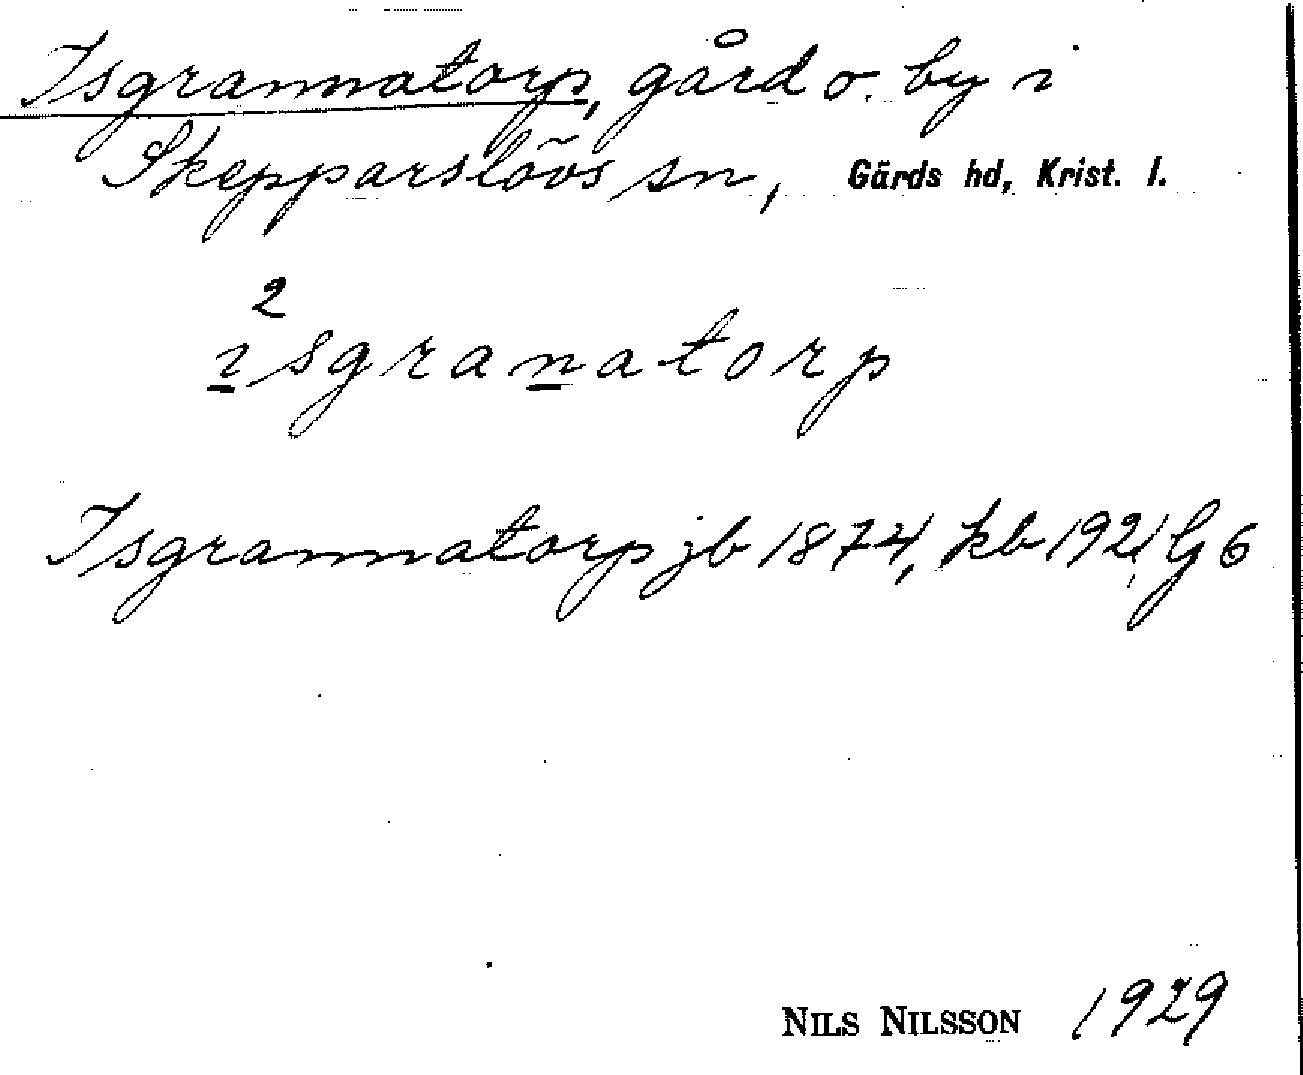 Isgrannatorp, gård o. by i
Skepparslövs sn, Gärds hd, Krist. l.
2
isgranatorp
Isgrannatorp jb 1874, kb 1921 G 6
NILS NILSSON 1929